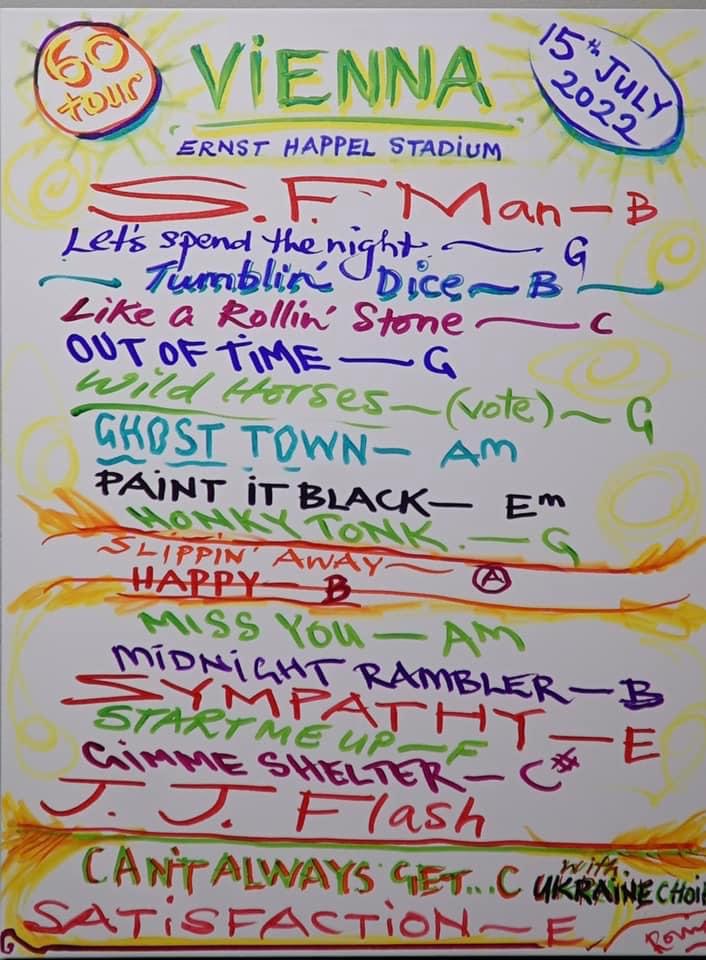 60 tour
VIENNA
15th JULY 2022
ERNST HAPPEL STADIUM
S.F. Man — B
Let's spend the night — G
Tumblin' Dice — B
Like a Rollin' Stone — C
OUT OF TIME — G
Wild Horses — (vote) — G
GHOST TOWN — Am
PAINT IT BLACK — Em
HONKY TONK — G
SLIPPIN' AWAY — A
HAPPY — B
MISS YOU — AM
MIDNIGHT RAMBLER — B
SYMPATHY — E
START ME UP — F
GIMME SHELTER — C#
J. J. Flash
CAN'T ALWAYS GET...C with UKRAINE CHOI
SATISFACTION — E